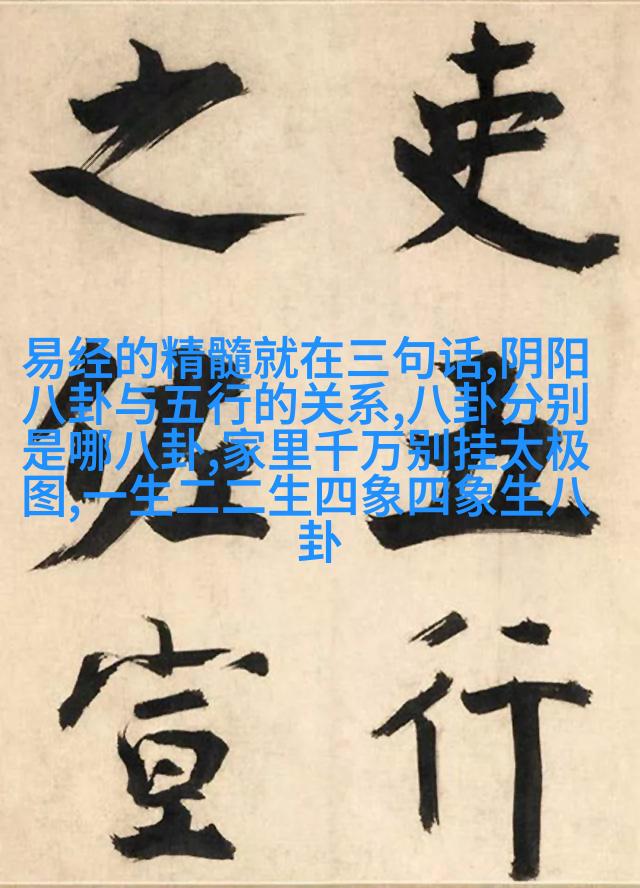 易经的精髓就在三句话,阴阳
八卦与五行的关系,八卦分别
是哪八卦,家里千万别挂太极
图,一生二二生四象四象生八
卦
吏行
之宣